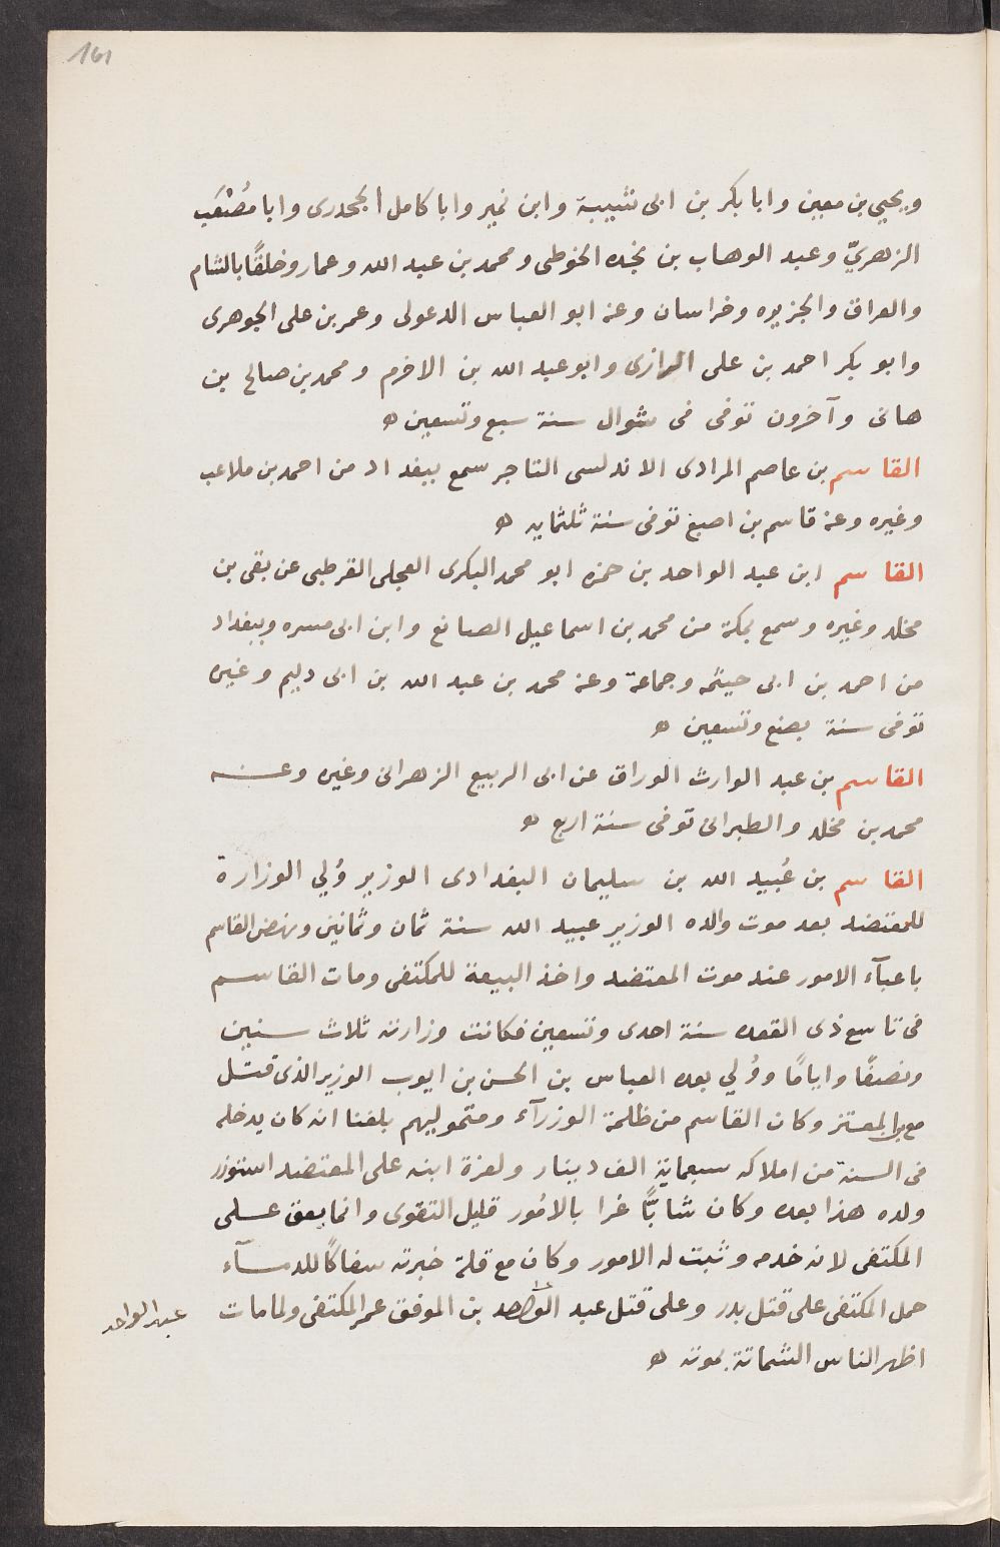 161
ويحيى بن معين وابا بكر بن ابى شيبة وابن نمير وابا كامل الجحدرى وابا مُصْعَب
الزهريّ وعبد الوهاب بن نجده الحوطى ومحمد بن عبد الله وعمار وخلقًا بالشام
والعراق والجزيره وخراسان وعنه ابو العباس الدغولى وعمر بن على الجوهرى
وابو بكر احمد بن على الرازى وابو عبد الله بن الاخرم ومحمد بن صالح بن
هانى وآخرون توفى فى شوال سنة سبع وتسعين ه
القاسم بن عاصم المرادى الاندلسى التاجر سمع ببغداد من احمد بن ملاعب
وغيره وعنه قاسم بن اصبغ توفى سنة ثلثمايه ه
القاسم ابن عبد الواحد بن حمزه ابو محمد البكرى العجلى القرطبى عن بقى بن
مخلد وغيره وسمع بمكة من محمد بن اسماعيل الصائغ وابن ابى مسره وببغداد
من احمد بن ابى حيثمه وجماعة وعنه محمد بن عبد الله بن ابى دليم وغيره
توفى سنة بضع وتسعين ه
القاسم بن عبد الوارث الوراق عن ابى الربيع الزهرانى وغيره وعنه
محمد بن مخلد والطبرانى توفى سنة اربع ه
القاسم بن عُبيد الله بن سليمان البغدادى الوزير وُلي الوزارة
للمعتضد بعد موت والده الوزير عبيد الله سنة ثمان وثمانين ونهض القاسم
باعبآء الامور عند موت المعتضد واخذ البيعة للمكتفى ومات القاسم
فى تاسع ذى القعده سنة احدى وتسعين فكانت وزارته ثلاث سنين
ونصفًا واياما ووُلي بعده العباس بن الحسن بن ايوب الوزير الذى قتل
مع المعتز وكان القاسم من ظلمة الوزرآء ومتموليهم بلغنا انه كان يدخله
فى السنة من املاكه سبعماية الف دينار ولعزة ابنه على المعتضد استوزر
ولده هذا بعده وكان شابًّا غرا بالامُور قليل التقوى وانما بعق على
المكتفى لانه خدمه وثبت له الامور وكان مع قلة خبرته سفاكًا للدمآء
حمل المكتفى على قتل بدر وعلى قتل عبد الواحد بن الموفق عم المكتفى ولما مات
عبد الواحد
اظهر الناس الشماتة بموته ه